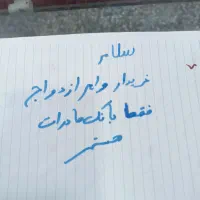 سلام
خریدار وام ازدواج
فقط بانک صادرات
هستم